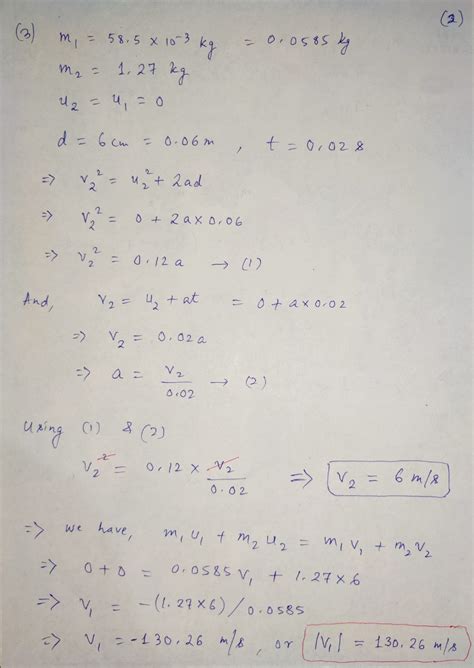 (2)
(3) m₁ = 58.5 × 10⁻³ kg = 0.0585 kg
m₂ = 1.27 kg
u₂ = u₁ = 0
d = 6 cm = 0.06 m , t = 0.02 s
⇒ v₂² = u₂² + 2ad
⇒ v₂² = 0 + 2a × 0.06
⇒ v₂² = 0.12 a → (1)
And, v₂ = u₂ + at = 0 + a × 0.02
⇒ v₂ = 0.02 a
⇒ a = v₂/0.02 → (2)
Using (1) & (2)
v₂² = 0.12 × v₂/0.02 ⇒ v₂ = 6 m/s
⇒ we have, m₁u₁ + m₂u₂ = m₁v₁ + m₂v₂
⇒ 0 + 0 = 0.0585 v₁ + 1.27 × 6
⇒ v₁ = -(1.27 × 6) / 0.0585
⇒ v₁ = -130.26 m/s, or |v₁| = 130.26 m/s